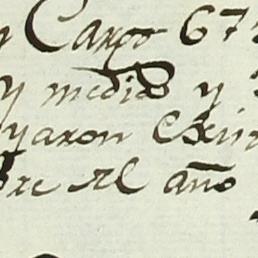 y Cargo 67
y medio y
yaron
bre el año